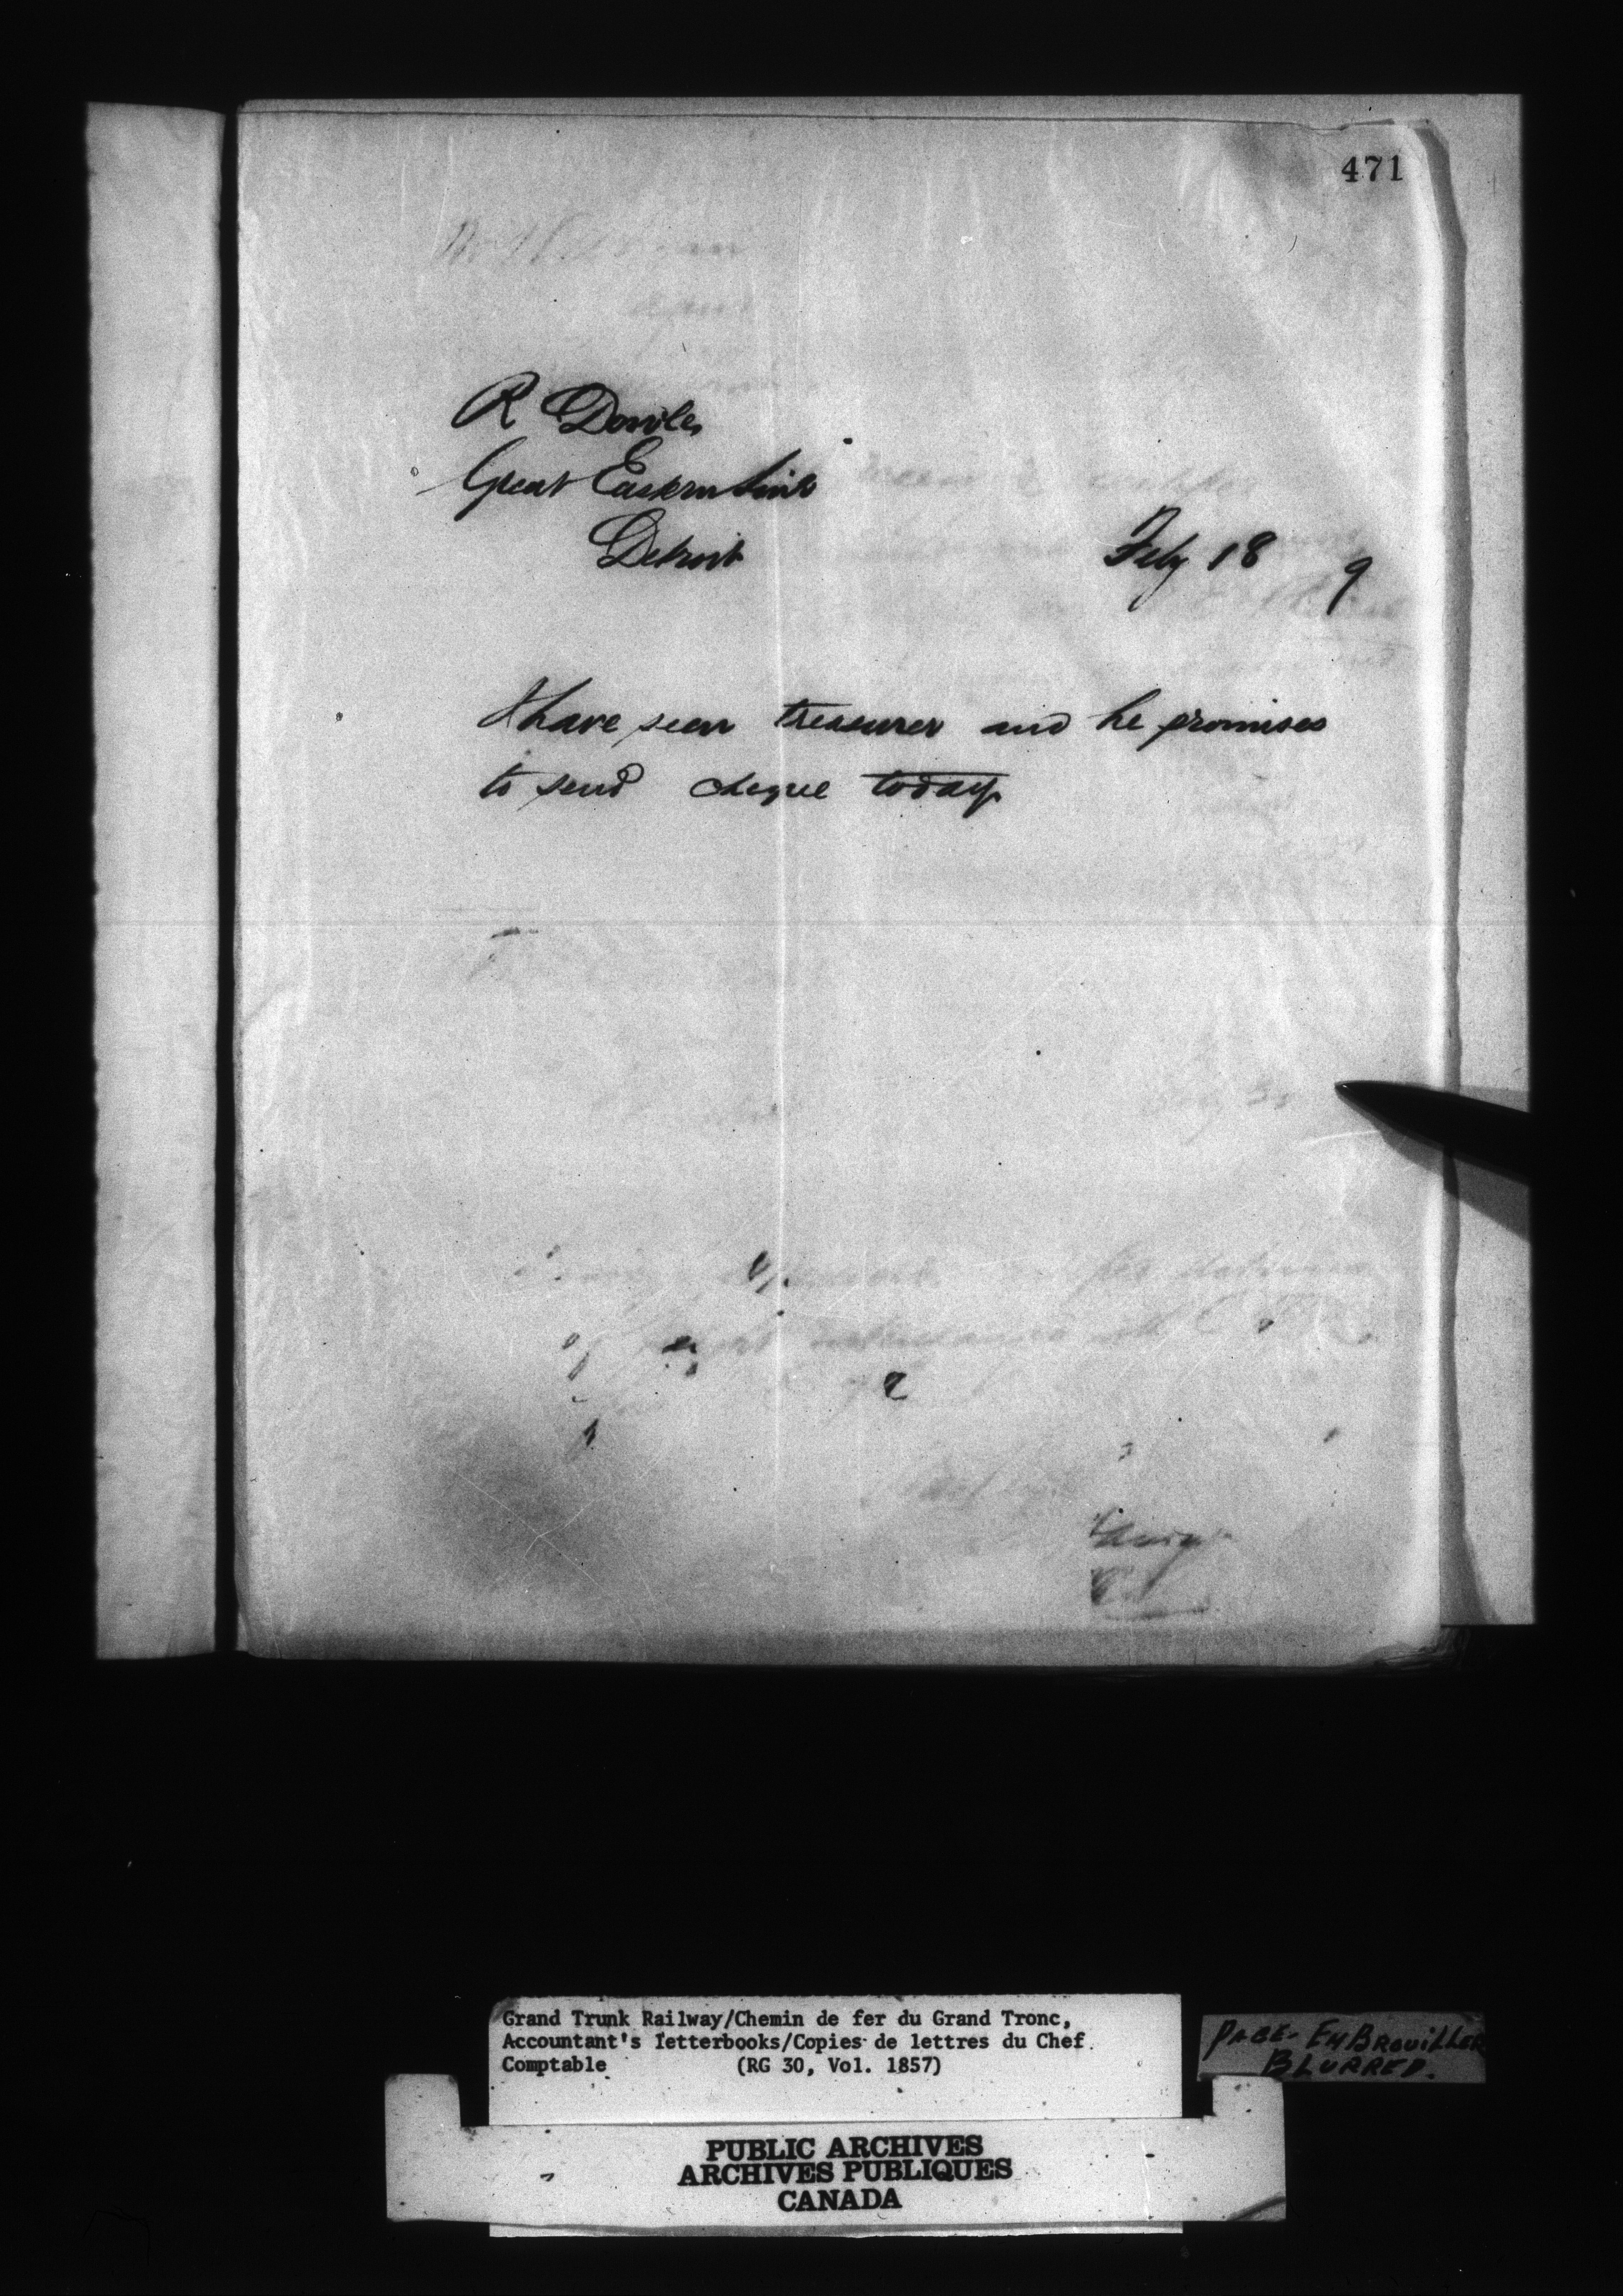 471
R Doville,
Great Eastern Line
Detroit
Feby 18 9
I have seen treasurer and he promises
to send cheque today
Grand Trunk Railway/Chemin de fer du Grand Tronc,
Accountant's letterbooks/Copies de lettres du Chef
Comptable (RG 30, Vol. 1857)
PAGE- EMBROUILLER
BLURRED.
PUBLIC ARCHIVES
ARCHIVES PUBLIQUES
CANADA